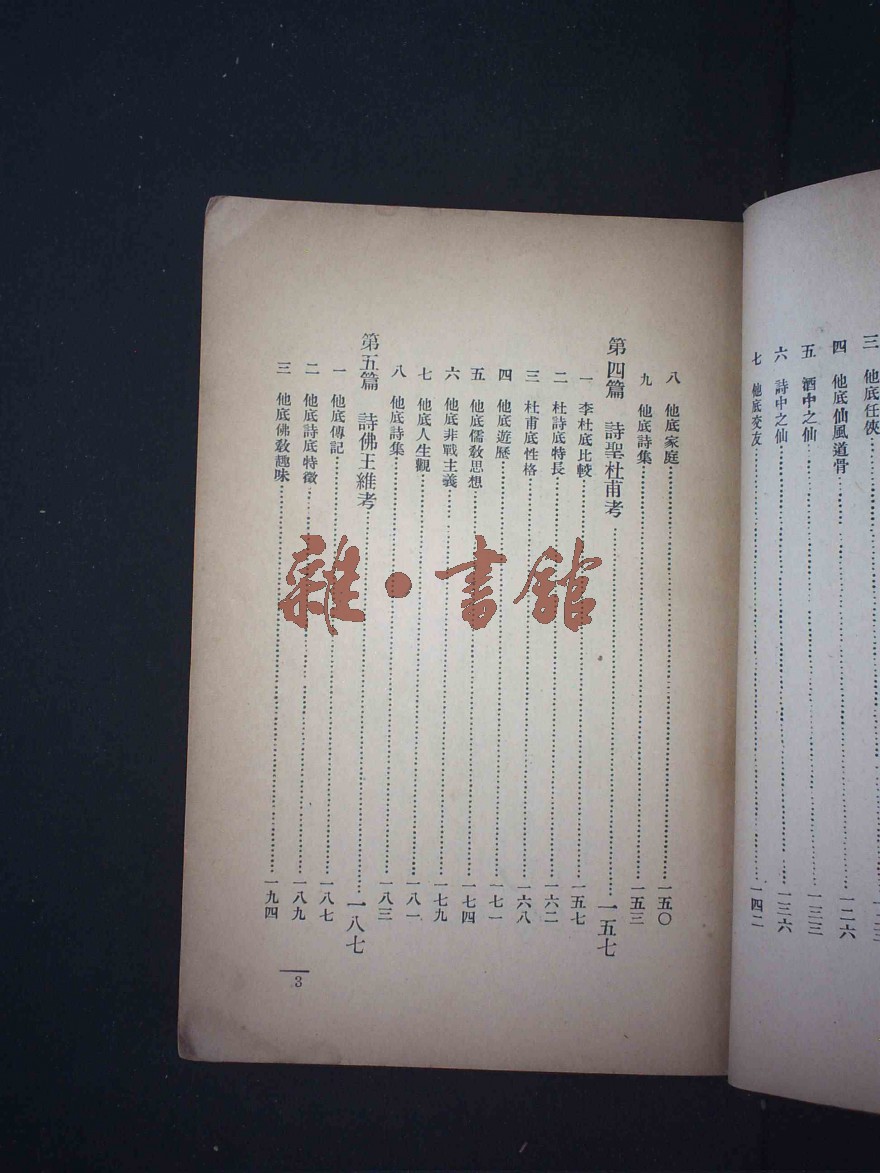 三 他底任俠
四 他底仙風道骨……一二六
五 酒中之仙……一三三
六 詩中之仙……一三六
七 他底交友……一四二
八 他底家庭……一五〇
九 他底詩集……一五三
第四篇 詩聖杜甫考……一五七
一 李杜底比較……一五七
二 杜詩底特長……一六二
三 杜甫底性格……一六八
四 他底遊歷……一七一
五 他底儒教思想……一七四
六 他底非戰主義……一七九
七 他底人生觀……一八一
八 他底詩集……一八三
第五篇 詩佛王維考……一八七
一 他底傳記……一八七
二 他底詩底特徵……一八九
三 他底佛教趣味……一九四
3
雜·書館